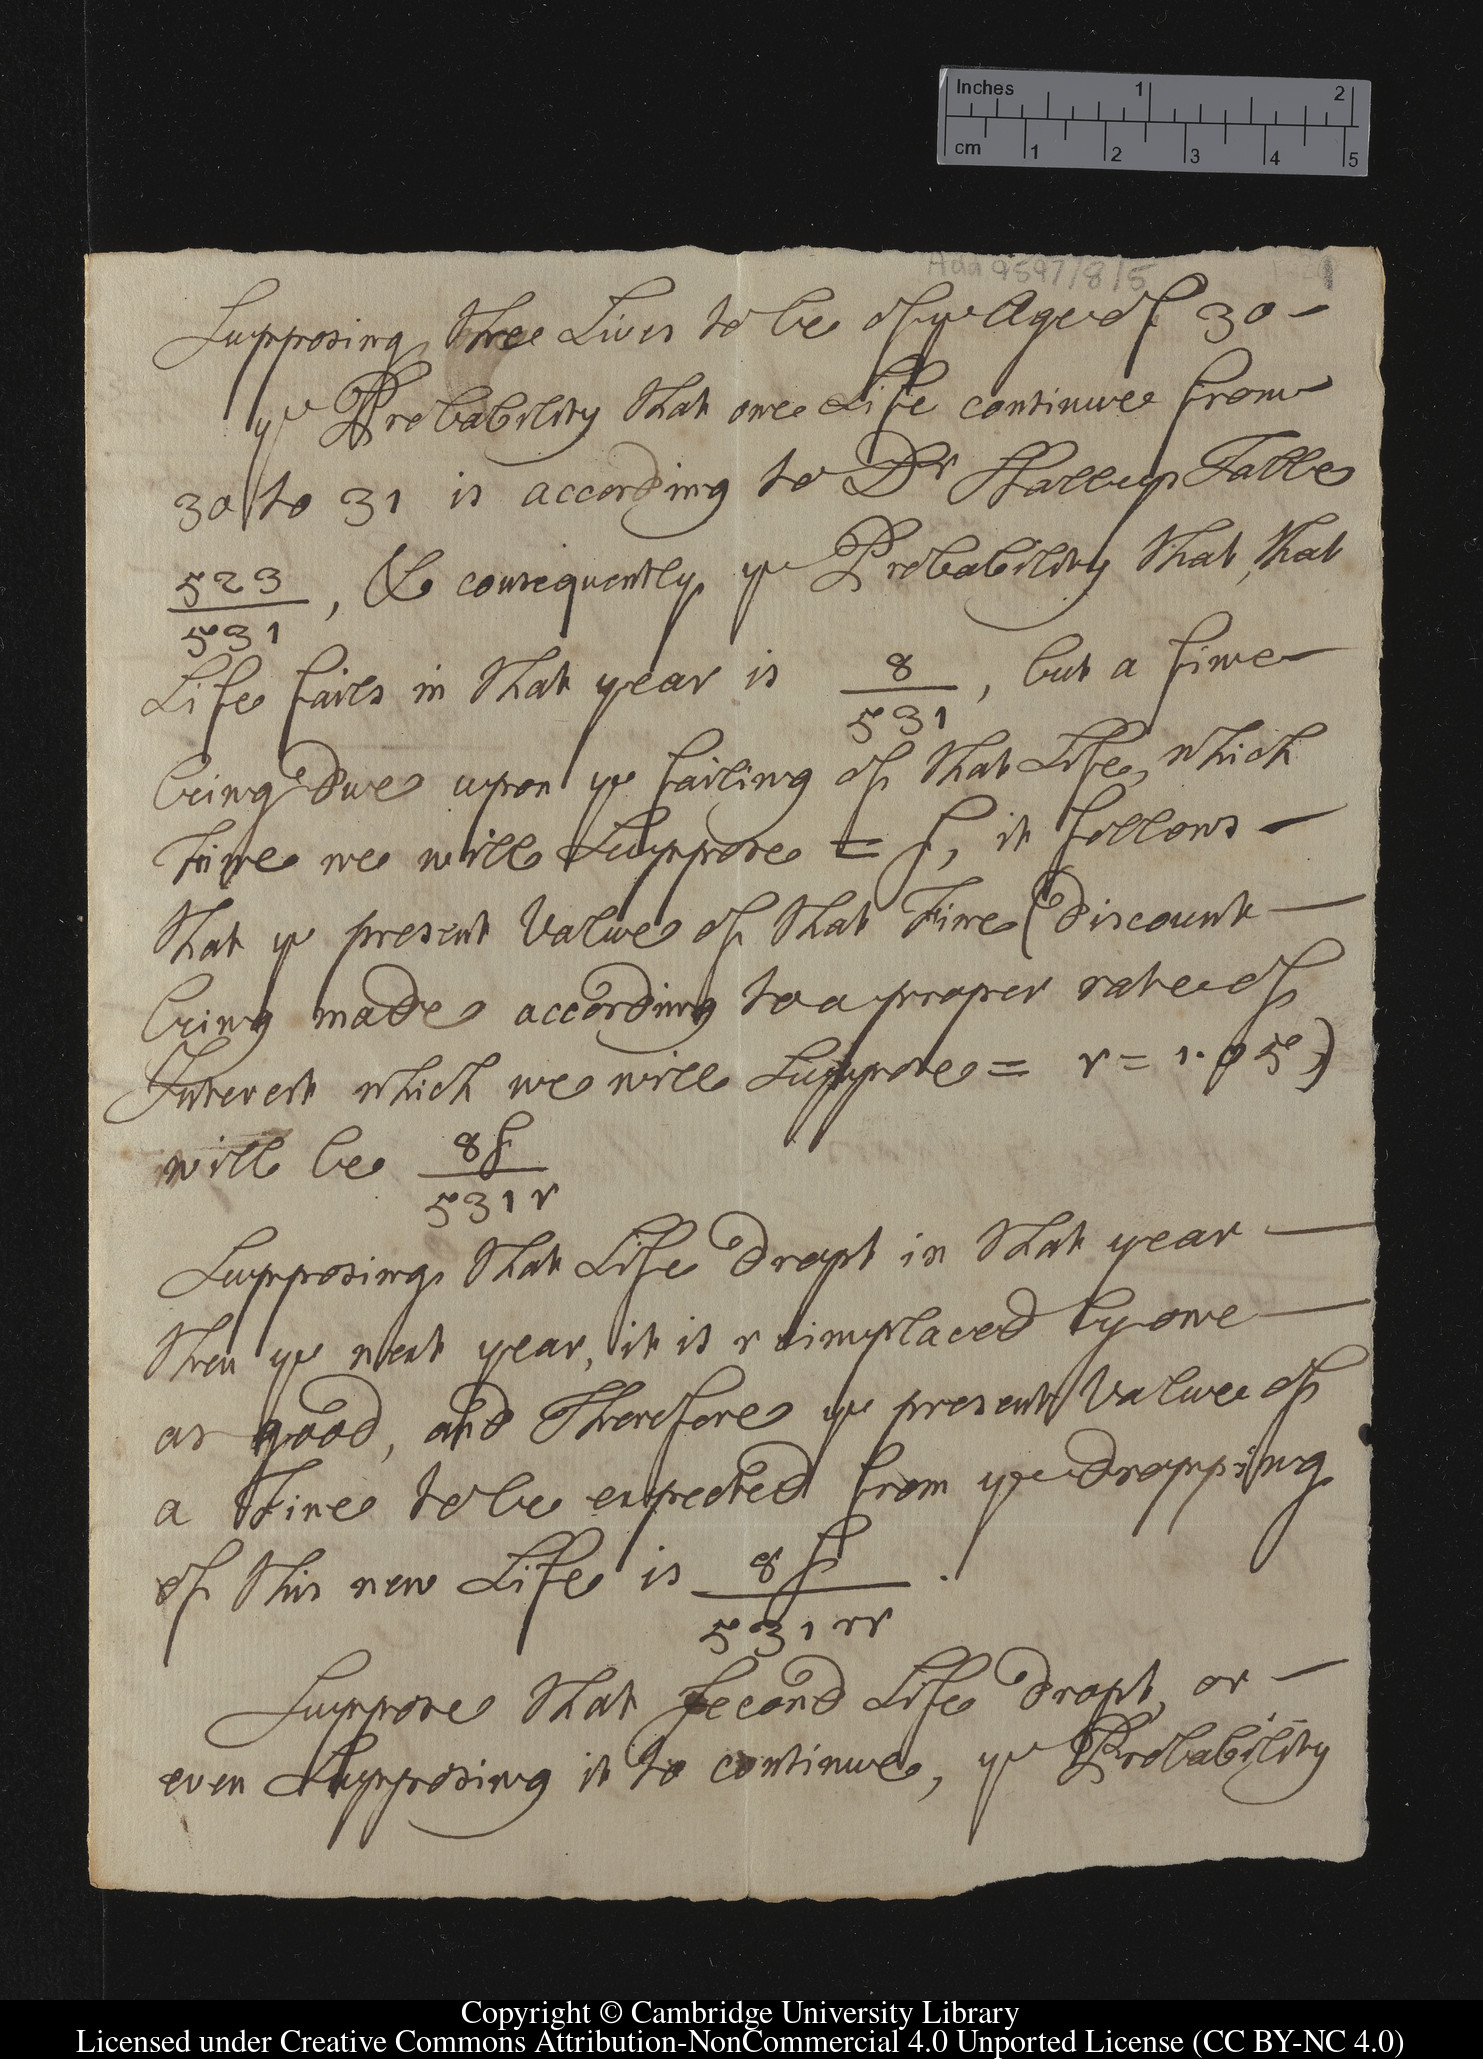 Inches 1 2
cm 1 2 3 4 5
Add 9597/8/5
Supposing three Lives to be of ye Age of 30 –
ye Probability that one Life continue from
30 to 31 is according to Dr Halleys Table
523/531, & consequently ye Probability that, that
Life fails in that year is 8/531, but a fine
being due upon ye failing of that Life, which
Fine we will Suppose = f, it follows –
that ye present Value of that Fine (discount –
being made according to a proper rate of
Interest which we will Suppose = r = 1.05)
will be 8f/531r
Supposing that Life dropt in that year –
then ye next year, it is reimplaced by one –
as good, and Therefore ye present Value of
a Fine to be expected from ye dropping
of this new Life is 8f/531rr.
Suppose that second Life dropt, or –
even Supposing it to continue, ye Probability
Copyright © Cambridge University Library
Licensed under Creative Commons Attribution-NonCommercial 4.0 Unported License (CC BY-NC 4.0)